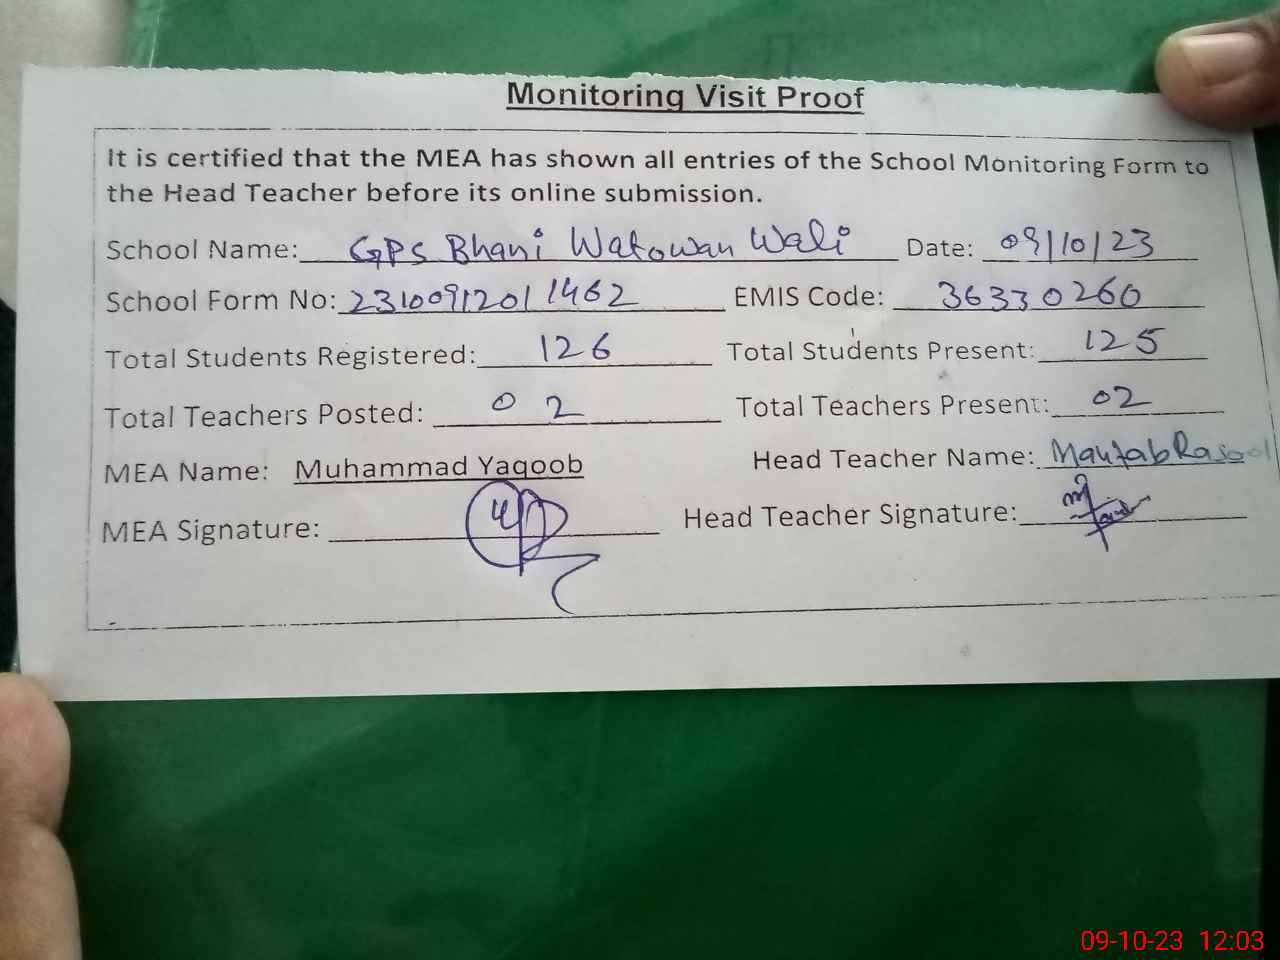 Monitoring Visit Proof
It is certified that the MEA has shown all entries of the School Monitoring Form to
the Head Teacher before its online submission.
School Name: GPS Bhani Watowan Wali Date: 09/10/23
School Form No: 2310091201 1462 EMIS Code: 36330260
Total Students Registered: 126 Total Students Present: 125
Total Teachers Posted: 02 Total Teachers Present: 02
MEA Name: Muhammad Yaqoob Head Teacher Name: Mahtab Rasool
MEA Signature: Head Teacher Signature:
09-10-23 12:03